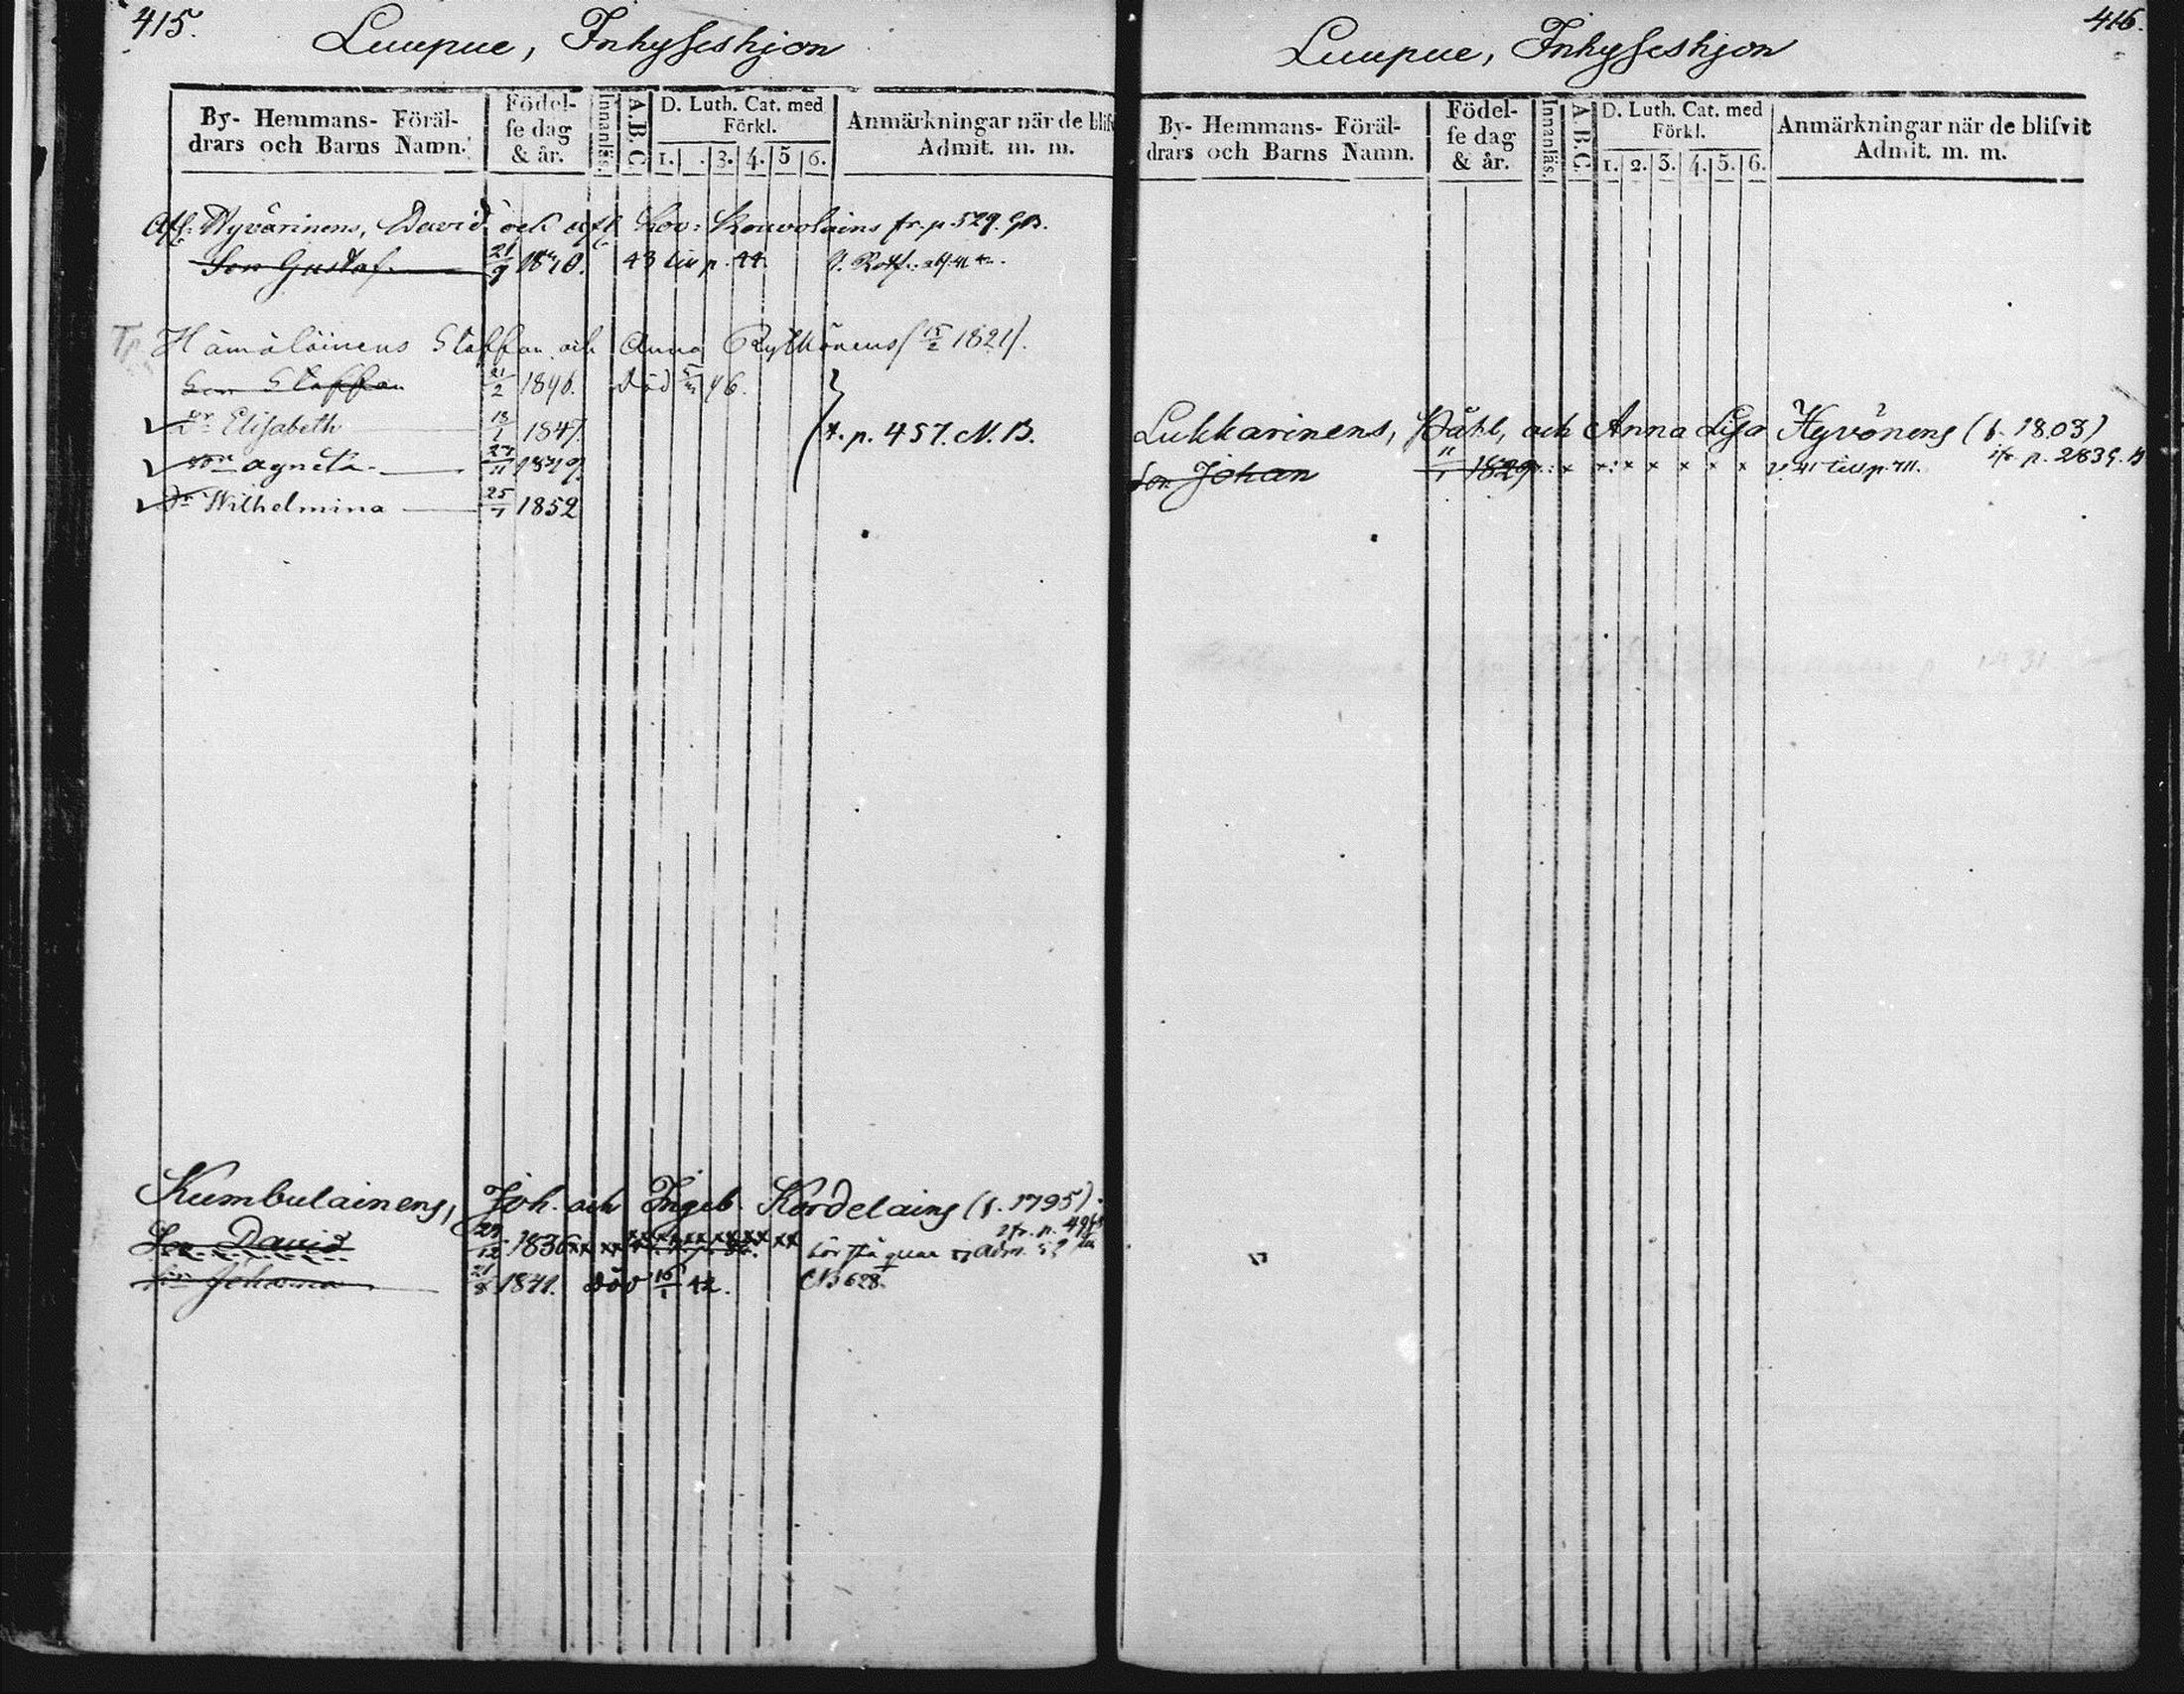 415.
Luupue, Inhyseshjon
By- Hemmans- Föräl-
drars och Barns Namn.
Födel-
se dag
& år.
Innanläs.
A.B.C.
D. Luth. Cat. med
Förkl.
1. . 3. 4. 5 6.
Anmärkningar när de blifv
Admit. m. m.
Afl. Hyvärinens, David och afl. Lov: Kouvolains fr. p. 529. GB.
Son Gustaf. 21/9 1840. 43 till p. 44.
Hämäläinens Staffan och Anna Rytkönens (15/2 1821).
Son Staffan 21/2 1846. död 46.
Dr Elisabeth 18/1 1847.
t. p. 457. N. B.
Agneta 27/11 1849.
Dr Wilhelmina 25/7 1852
Kumbulainens, Joh. och Ingeb. Kordelains (f. 1795).
Son David 29/12 1836 xx xx xx xx xx xx xx xx
bör stå quar Adm.
Johanna 21/8 1841. död 16/1 42. NB 628.
416.
Luupue, Inhyseshjon
By- Hemmans- Föräl-
drars och Barns Namn.
Födel-
se dag
& år.
Innanläs.
A.B.C.
D. Luth. Cat. med
Förkl.
1. 2. 3. 4. 5. 6.
Anmärkningar när de blifvit
Admit. m. m.
Lukkarinens, Påhl, och Anna Lisa Hyvönens (f. 1808)
fr. p. 2839. B
Son Johan 11/1 1829 x x x x x x x 41 till p. 711.